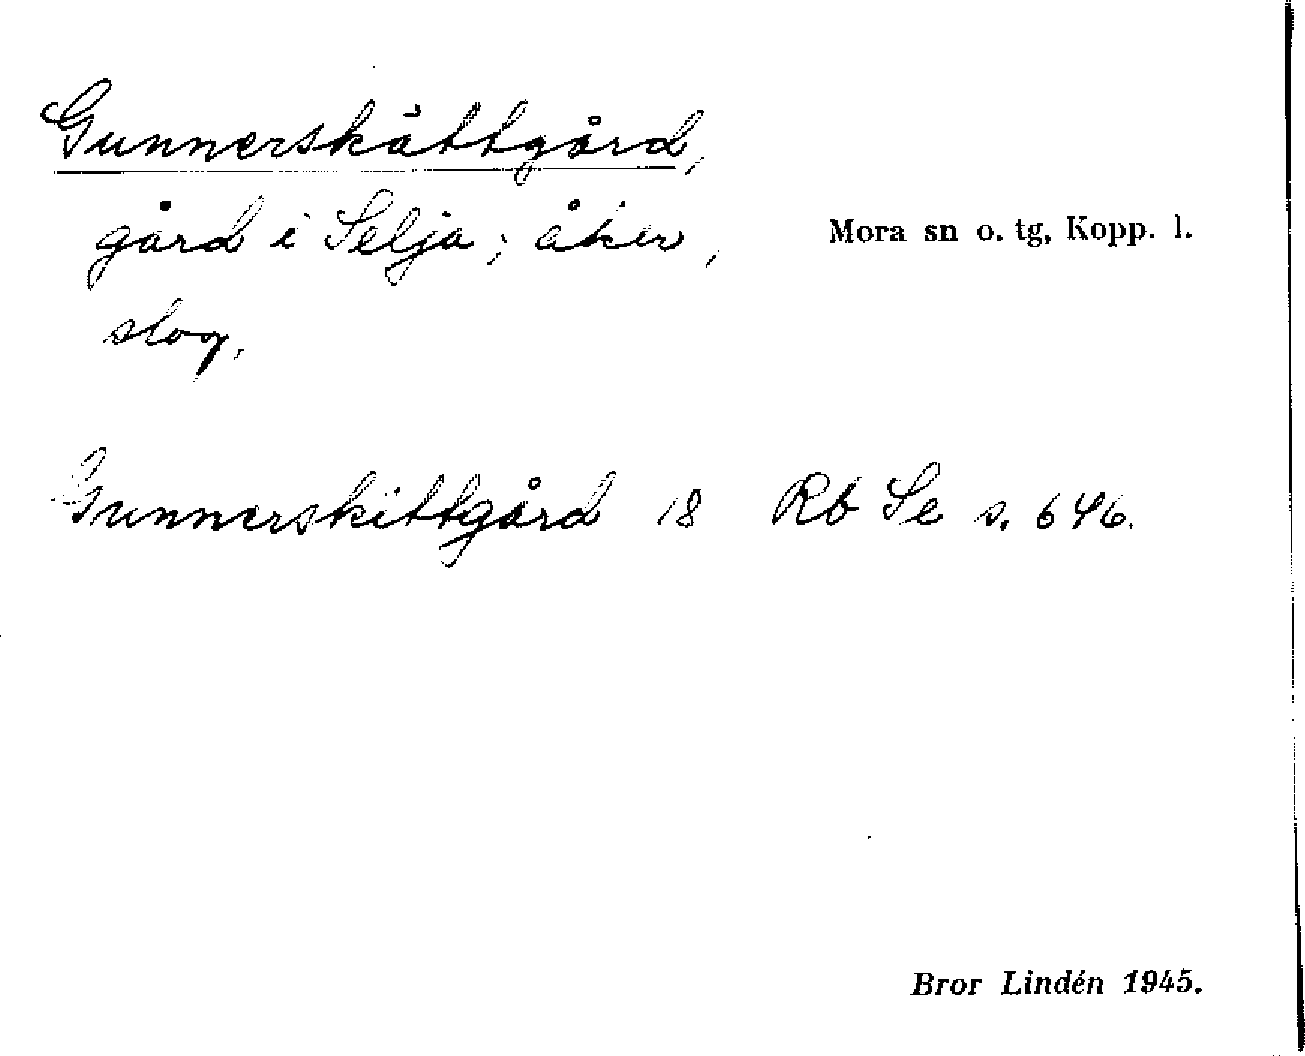 Gunnerskättgård,
gård i Selja; åker,
slog.
Mora sn o. tg, Kopp. l.
Gunnerskittgård 18 Rb Se s. 646.
Bror Lindén 1945.